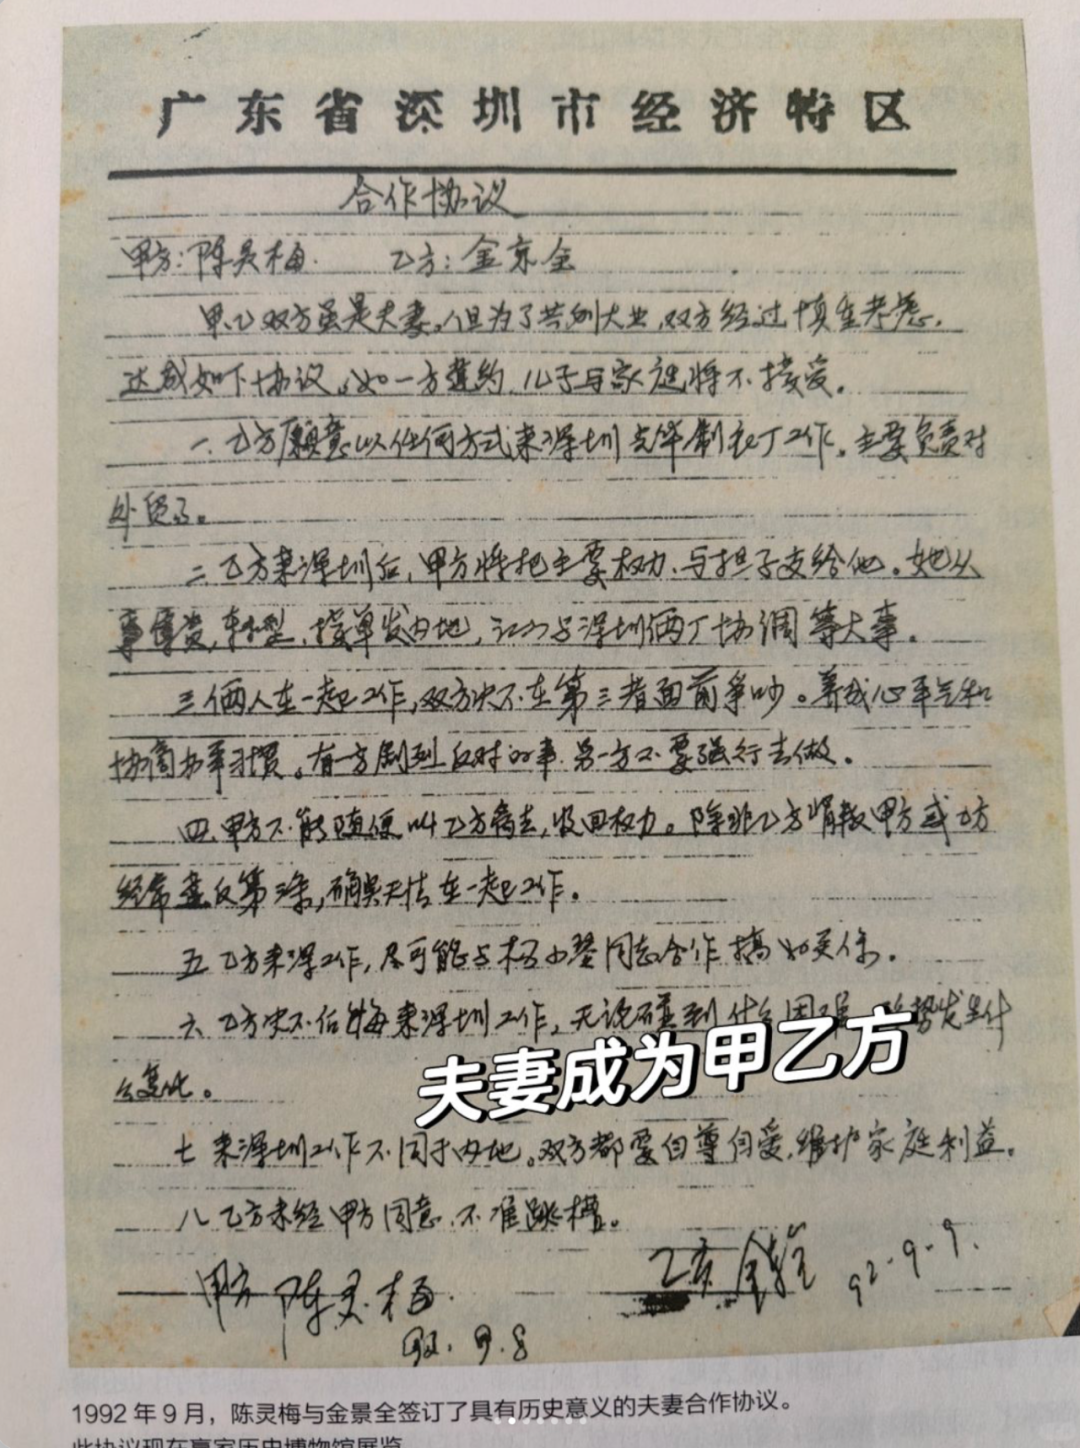 广东省深圳市经济特区
合作协议
甲方:陈灵梅. 乙方:金京全
甲、乙双方虽是夫妻。但为了共创大业,双方经过慎重考虑,
达成如下协议。如一方违约,儿子与家庭将不接受。
一、乙方愿意以任何方式来深圳 制衣厂工作。主要负责对
外贸易。
二、乙方来深圳后,甲方将把主要权力、与担子交给他。她从
事 接单发内地, 与深圳俩厂协调等大事。
三、俩人在一起工作,双方决不在第三者面前争吵。养成心平气和
协商办事习惯。有一方 到反对的事.另一方不要强行去做。
四、甲方不能随便叫乙方离去,收回权力。除非乙方 甲方或乙方
经常违反第三条,确实无法在一起工作。
五、乙方来深工作,尽可能与杨小 同志合作搞好关系。
六、乙方决不后悔来深圳工作,无论碰到什么困难 形势发生什
么变化。
夫妻成为甲乙方
七、来深圳工作不同于内地。双方都要自尊自爱,维护家庭利益。
八、乙方未经甲方同意.不准跳槽。
甲方 陈灵梅.
92.9.8
乙方 92.9.9.
1992年9月,陈灵梅与金景全签订了具有历史意义的夫妻合作协议。
此协议现在赢家历史博物馆展览